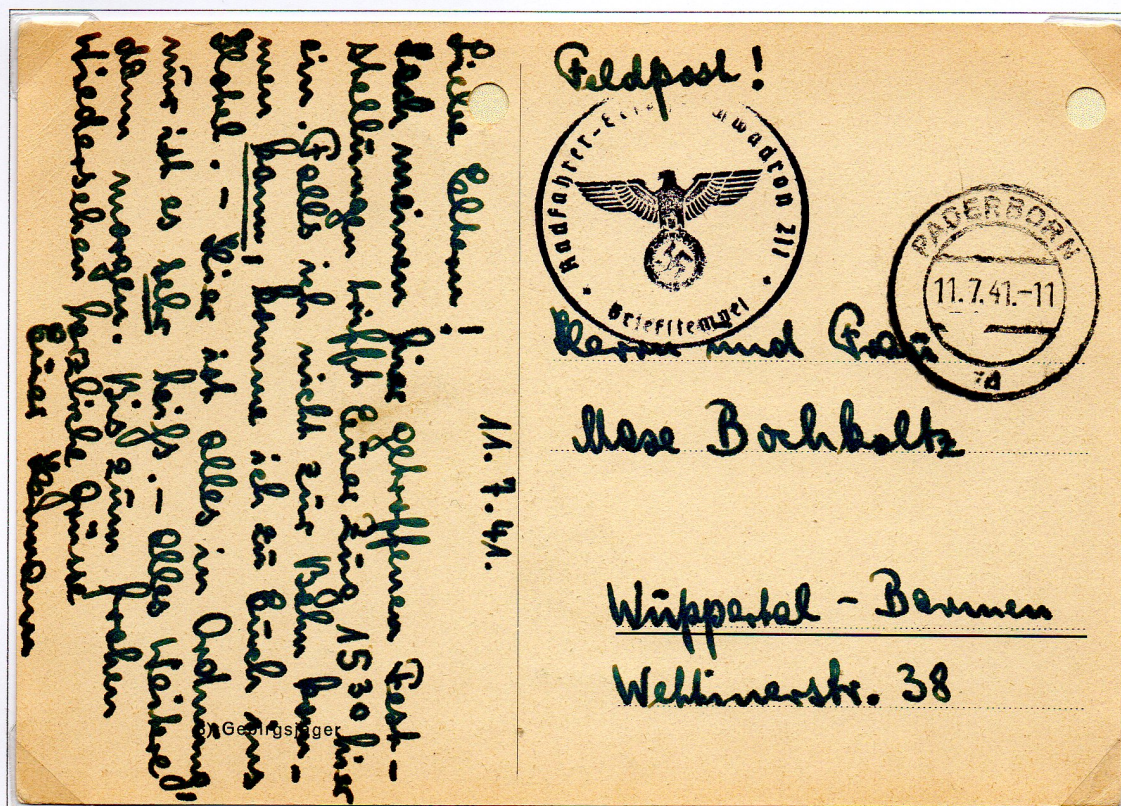 11. 7. 41.
Liebe Eltern!
Nach meinen hier getroffenen Fest-
stellungen trifft Euer Zug 15 30 hier
ein. Falls ich nicht zur Bahn kom-
men kann, komme ich zu Euch ins
Hotel. – Hier ist alles in Ordnung,
nur ist es sehr heiß. – Alles Weitere
dann morgen. Bis zum frohen
Wiedersehen herzliche Grüße
Euer
Gebirgsjäger
Feldpost!
Radfahrer- 211
Briefstempel
PADERBORN
11.7.41.-11
Herrn und Frau
Bochholtz
Wuppertal - Barmen
Wettinerstr. 38